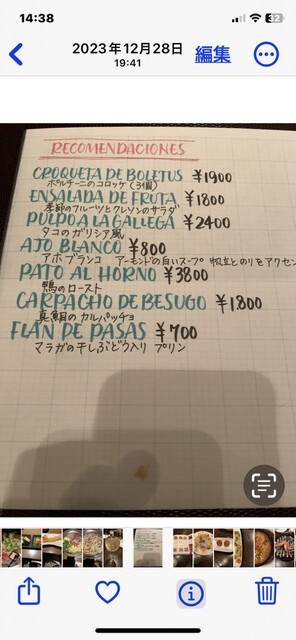 14:38
32
2023年12月28日
19:41
編集
RECOMENDACIONES
CROQUETA DE BOLETUS ¥1900
ポルチーニのコロッケ (3個)
ENSALADA DE FRUTA ¥1800
季節のフルーツとクレソンのサラダ
PULPO A LA GALLEGA ¥2400
タコのガリシア風
AJO BLANCO ¥800
アホブランコ アーモンドの白いスープ 帆立とのりをアクセン
PATO AL HORNO ¥3800
鴨のロースト
CARPACHO DE BESUGO ¥1800
真鯛のカルパッチョ
FLAN DE PASAS ¥700
マラガの干しぶどう入り プリン